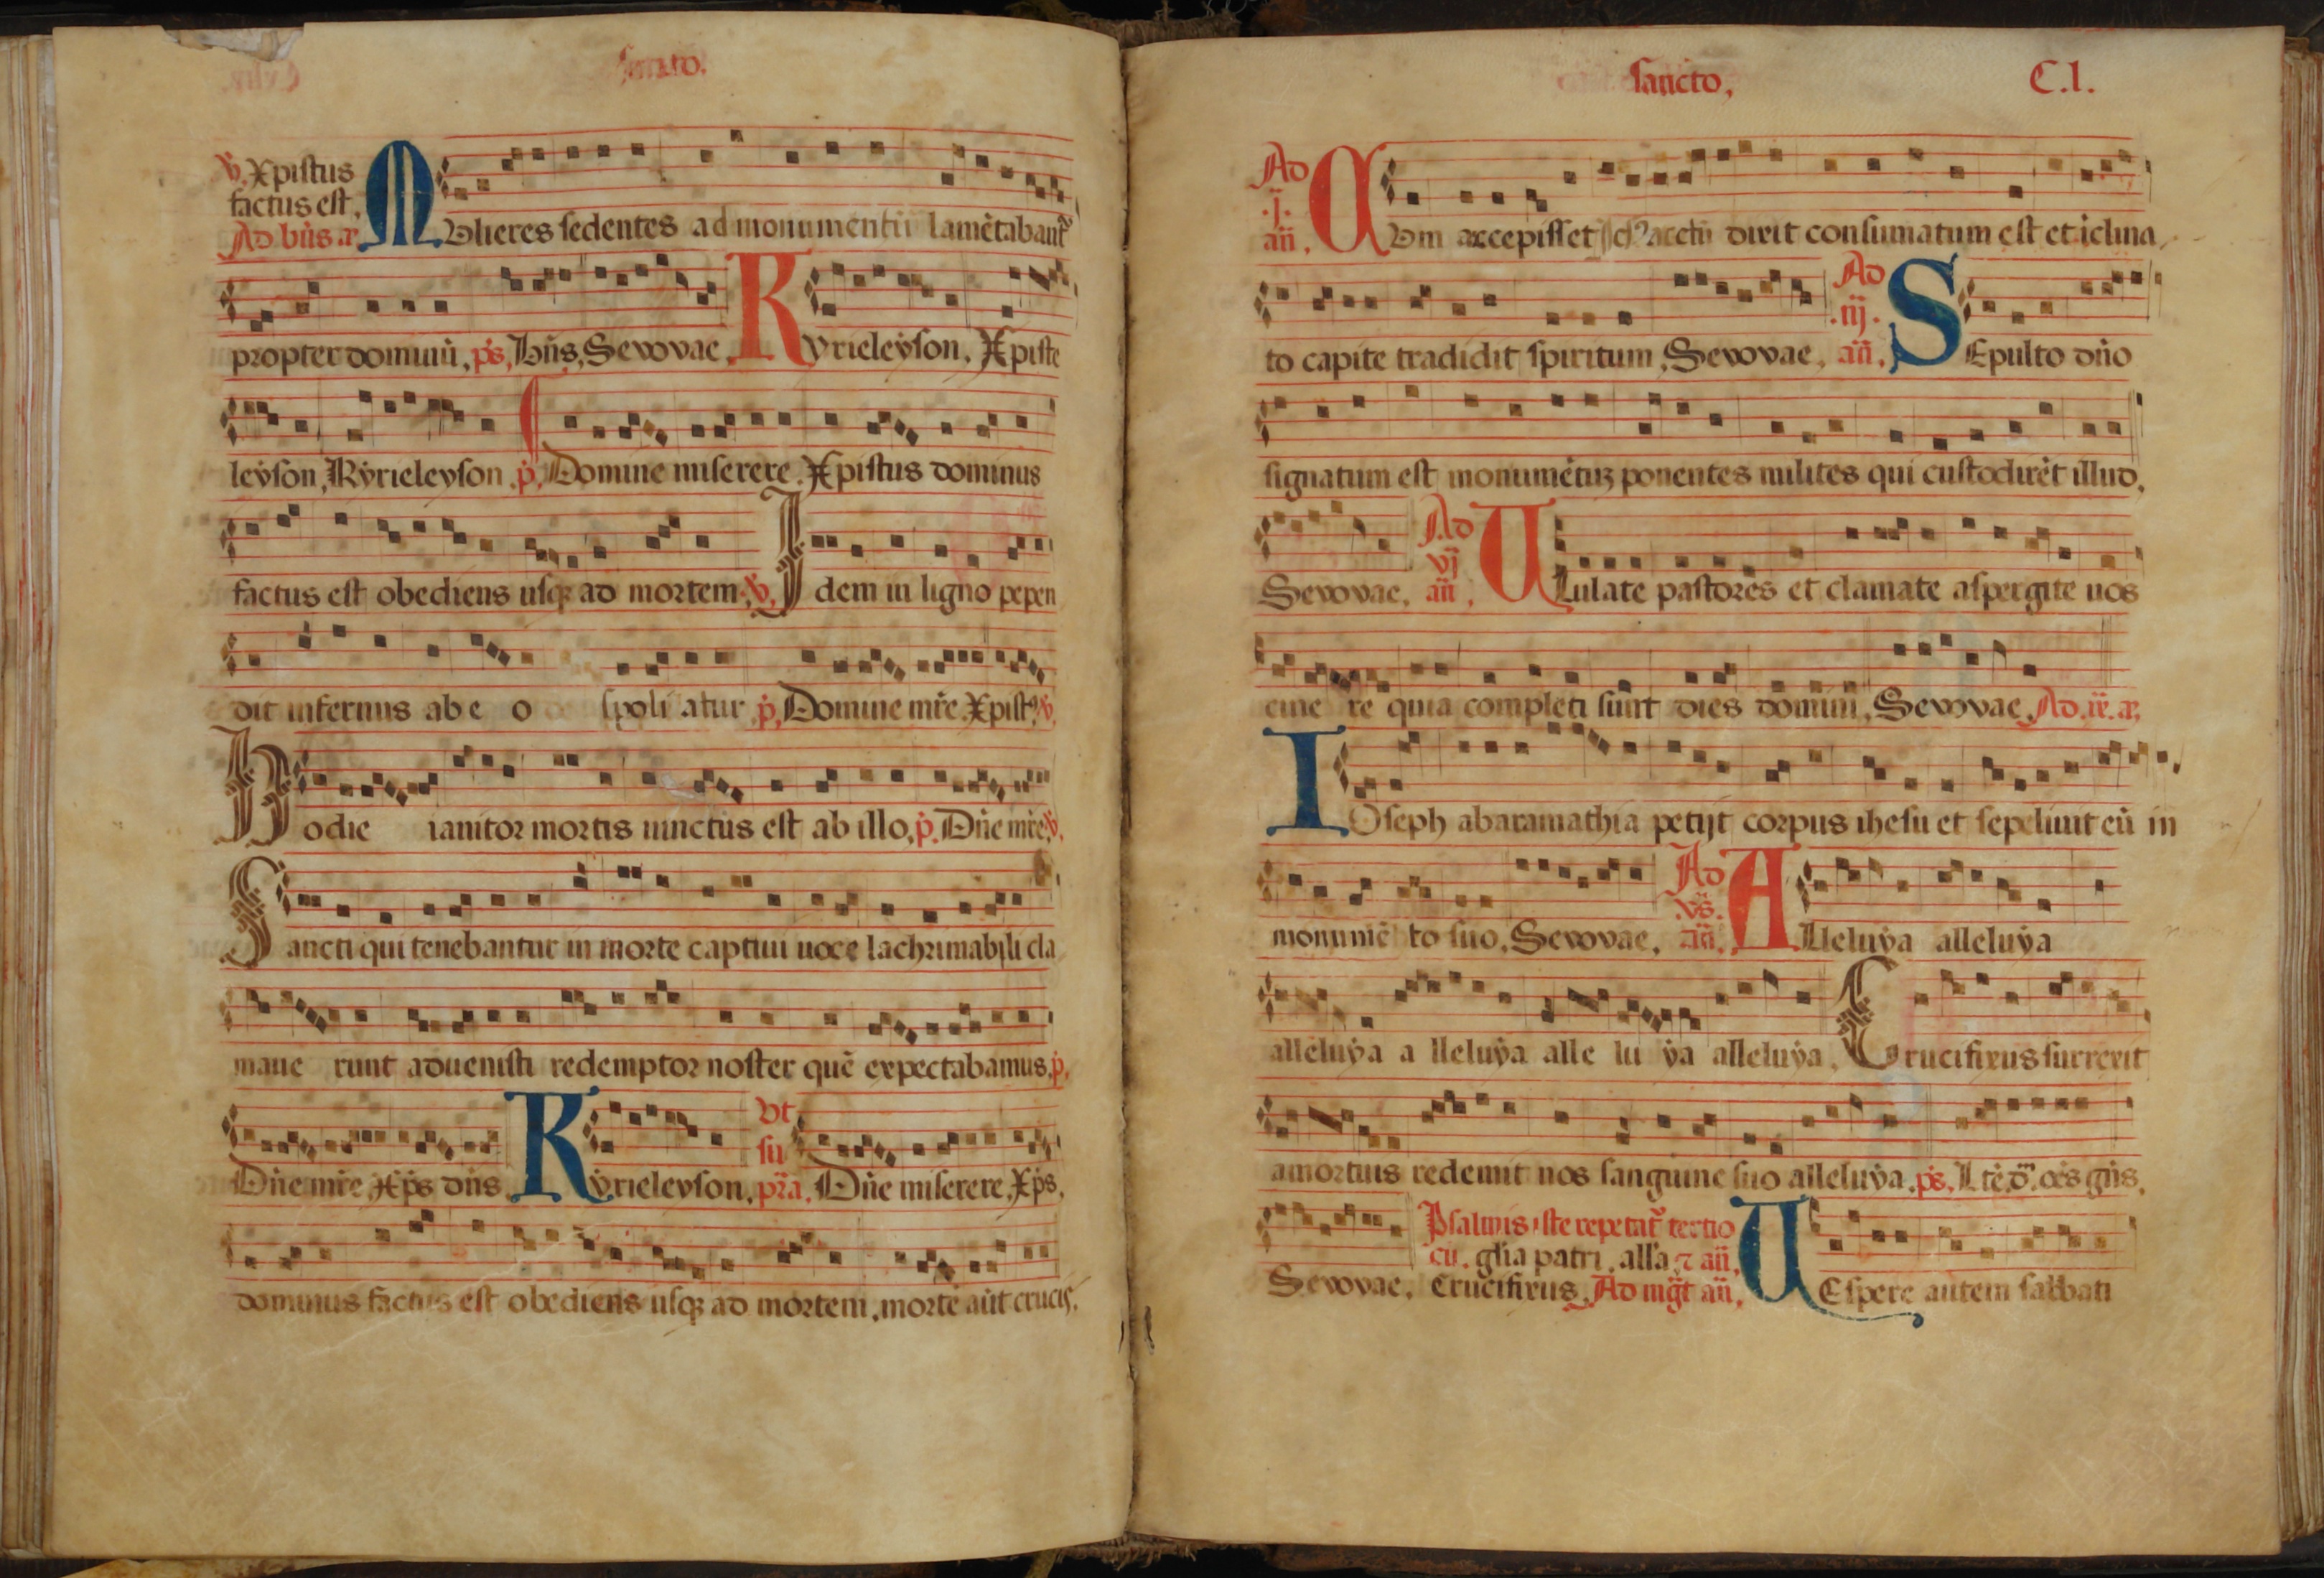 ℣. Xpistus
factus est.
Ad bn̄s añ.
Mulieres sedentes ad monumentū lamētabant᷑
propter dominū. ps. Bn̄s. Sevovae. Kyrieleyson. Xpiste
leyson. Kyrieleyson. p. Domine miserere. Xpistus dominus
factus est obediens usq; ad mortem. ℣. Idem in ligno pepen
dit infernus ab e o spoli atur p. Domine mr̄e. Xpist⁹ ℣.
Hodie ianitor mortis iunctus est ab illo. p. Dn̄e mr̄e ℣.
Sancti qui tenebantur in morte captiui uoce lachrimabili cla
maue runt aduenisti redemptor noster quē expectabamus. p.
Dn̄e mr̄e Xp̄s dn̄s. Kyrieleyson. vt supr̄a. Dn̄e miserere. Xp̄s.
dominus factus est obediens usq; ad mortem. mortē aūt crucis.
sancto. C.l.
Ad .j. añ. Cum accepisset acetū dixit consumatum est et īclina
to capite tradidit spiritum. Sevovae. Ad .iij. añ. Sepulto dn̄o
signatum est monumētuꝫ ponentes milites qui custodirēt illud.
Sevovae. Ad vj añ. Ululate pastores et clamate aspergite uos
cine re quia completi sunt dies domini. Sevovae. Ad .ix. añ.
Ioseph abaramathia petijt corpus ihesu et sepeliuit eū in
monumē to suo. Sevovae. Ad vs̄. añ. Alleluya alleluya
alleluya a lleluya alle lu ya alleluya. Crucifixus surrexit
amortuis redemit nos sanguine suo alleluya. ps. Ltē. d. oēs gn̄s.
Sevovae. Psalmis iste repetat᷑ tertio
cū. glīa patri. all'a ⁊ añ.
Crucifixus. Ad mḡt añ. Uespere autem sabbati